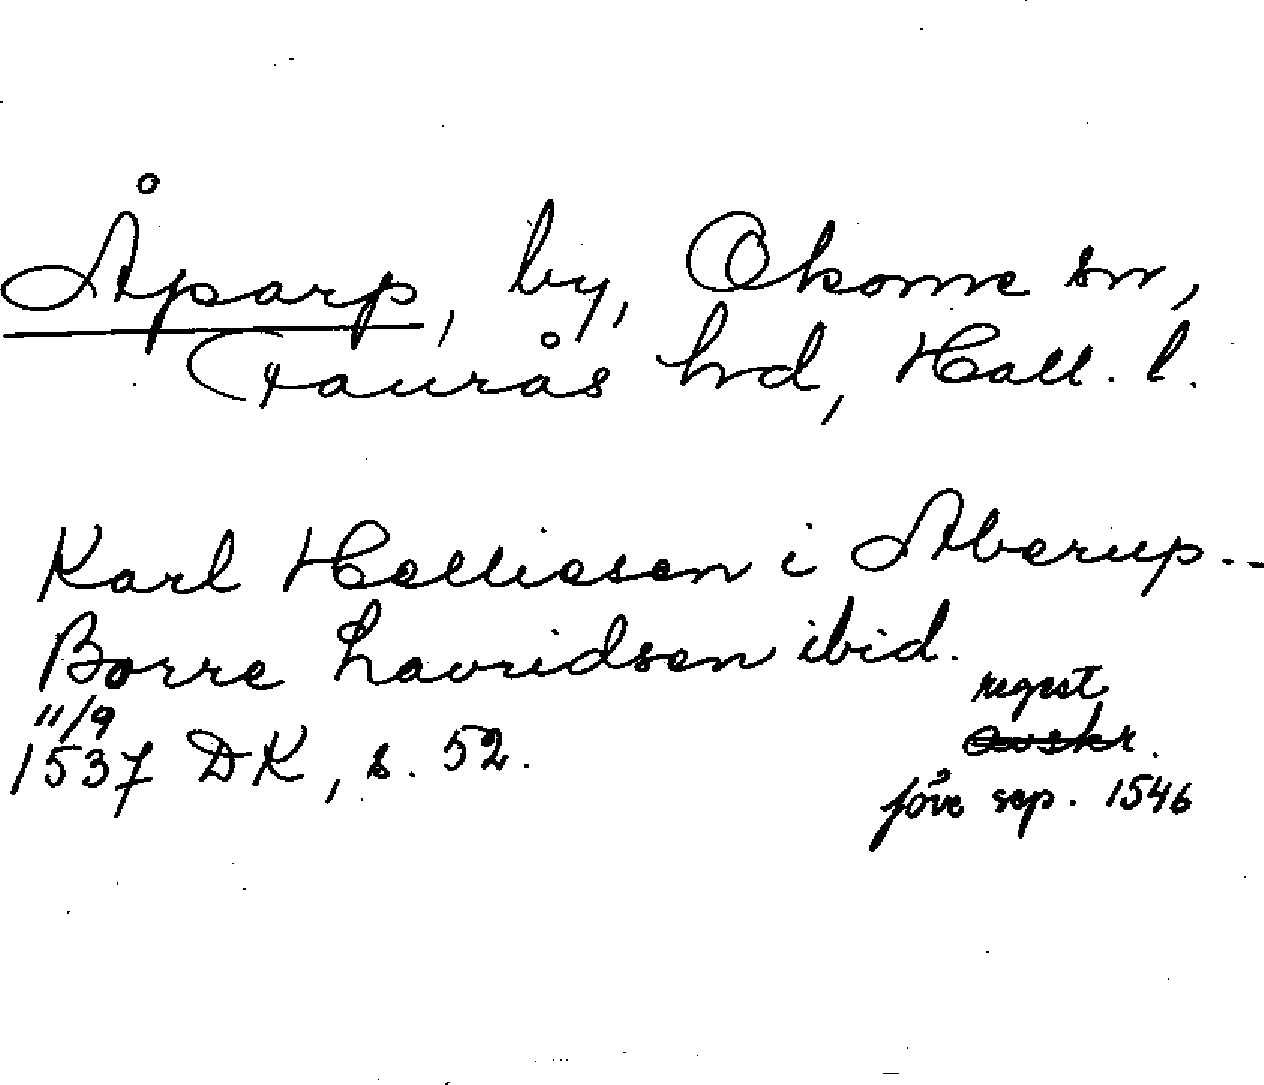 Åparp, by, Okome sn,
Faurås hrd, Hall. l.
Karl Helliesen i Aberup--
Borre Lavridsen ibid.
11/9
1537 DK, s. 52.
regest
avskr.
före sep. 1546